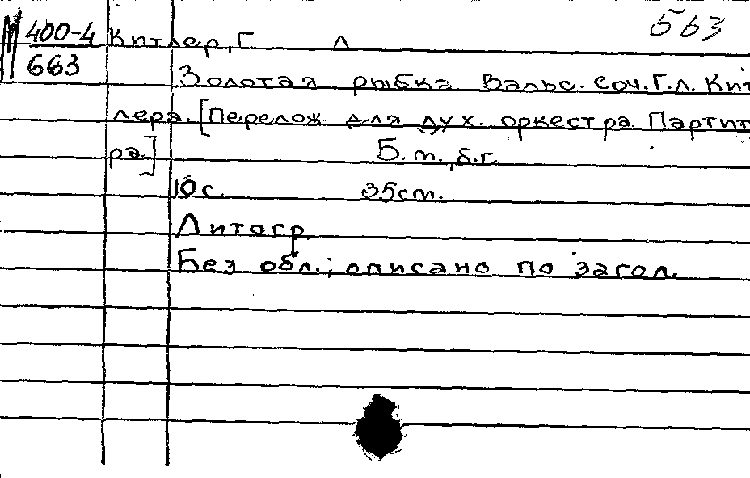 М 400-4 Китлер, Г. Л 563
663
Золотая рыбка. Вальс. Соч. Г. Л. Кит
лера. [Перелож. для дух. оркестра. Партиту
ра.]
Б. м., б. г.
10 с. 35 cm.
Литогр.
Без обл.; описано по загол.